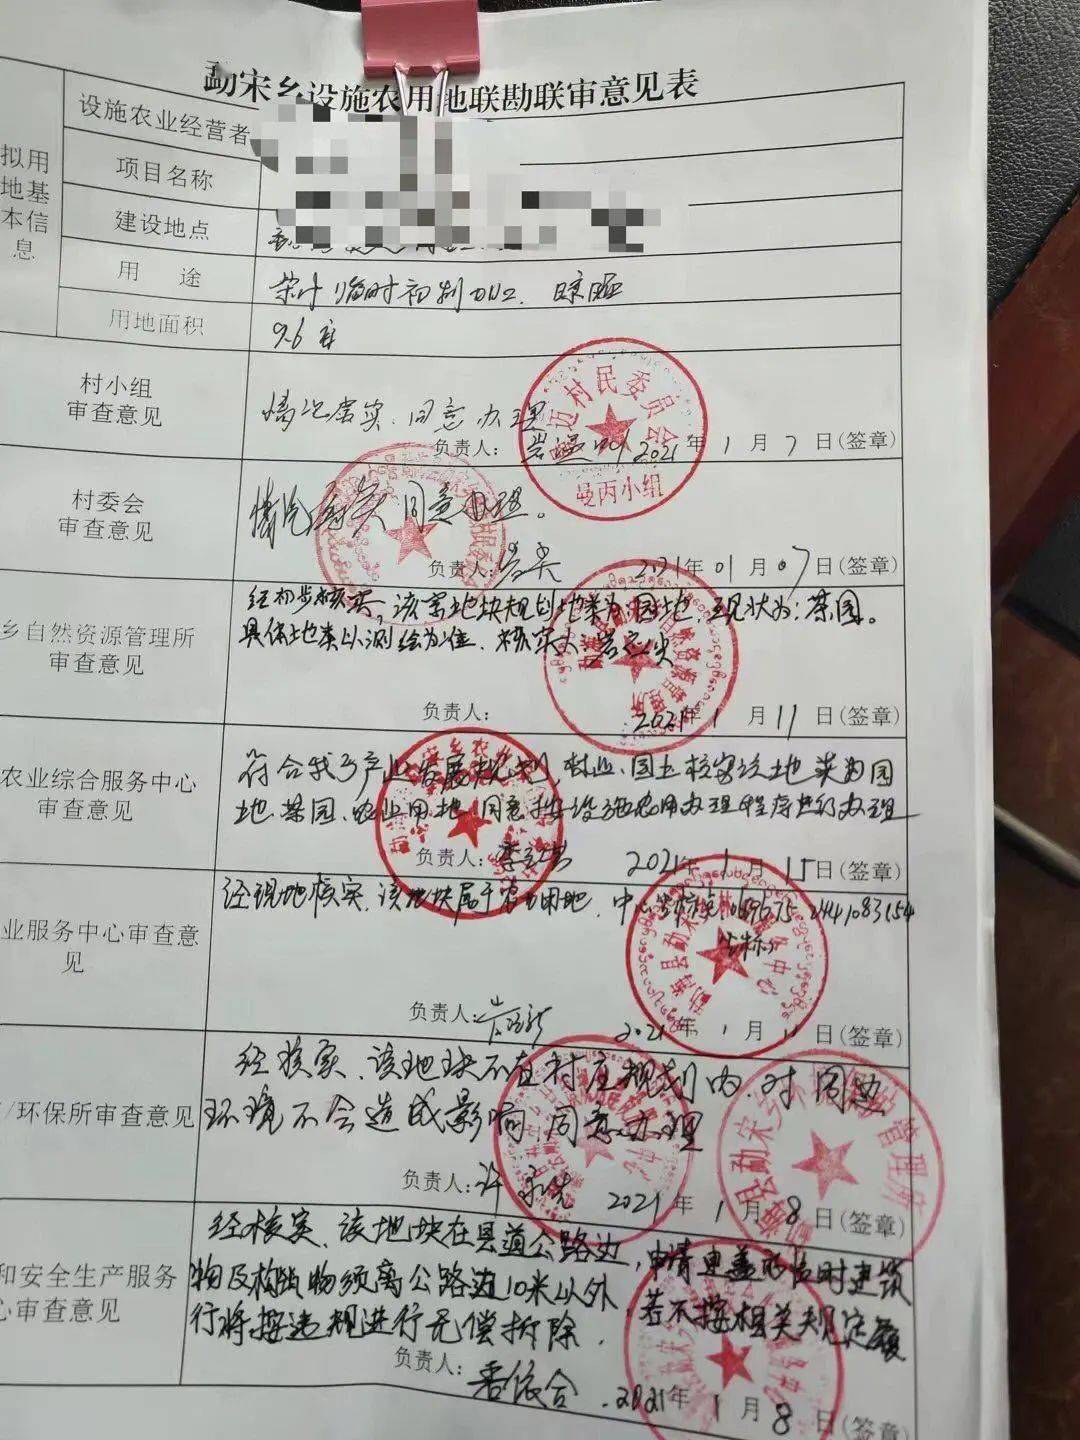 勐宋乡设施农用地联勘联审意见表
拟用地基本信息
设施农业经营者
项目名称
建设地点
用 途
茶叶临时初制 晾晒
用地面积
9.6 亩
村小组
审查意见
情况属实、同意办理
负责人: 2021年1月7日(签章)
村民委员会
曼丙小组
村委会
审查意见
情况属实 同意办理。
负责人: 2021年01月07日(签章)
乡自然资源管理所
审查意见
经初步核实,该宗地块规划地类为:园地,现状为:茶园。
具体地类以测绘为准。核实人:岩
负责人: 2021年1月11日(签章)
农业综合服务中心
审查意见
符合我乡产业发展规划,林业、国土核实该地类为园
地、茶园、农业用地,同意按设施农用办理程序进行办理
负责人: 2021年1月15日(签章)
业服务中心审查意
见
经现地核实,该地块属于农用地,中心坐标
坐标
负责人: 2021年1月11日(签章)
/环保所审查意见
经核实、该地块不在村庄规划内,对周边
环境不会造成影响,同意办理
负责人:许 2021年1月8日(签章)
和安全生产服务
心审查意见
经核实、该地块在县道公路边,申请建盖的临时建筑
物及构筑物须离公路边10米以外,若不按相关规定履
行将按违规进行无偿拆除。
负责人: 2021年1月8日(签章)